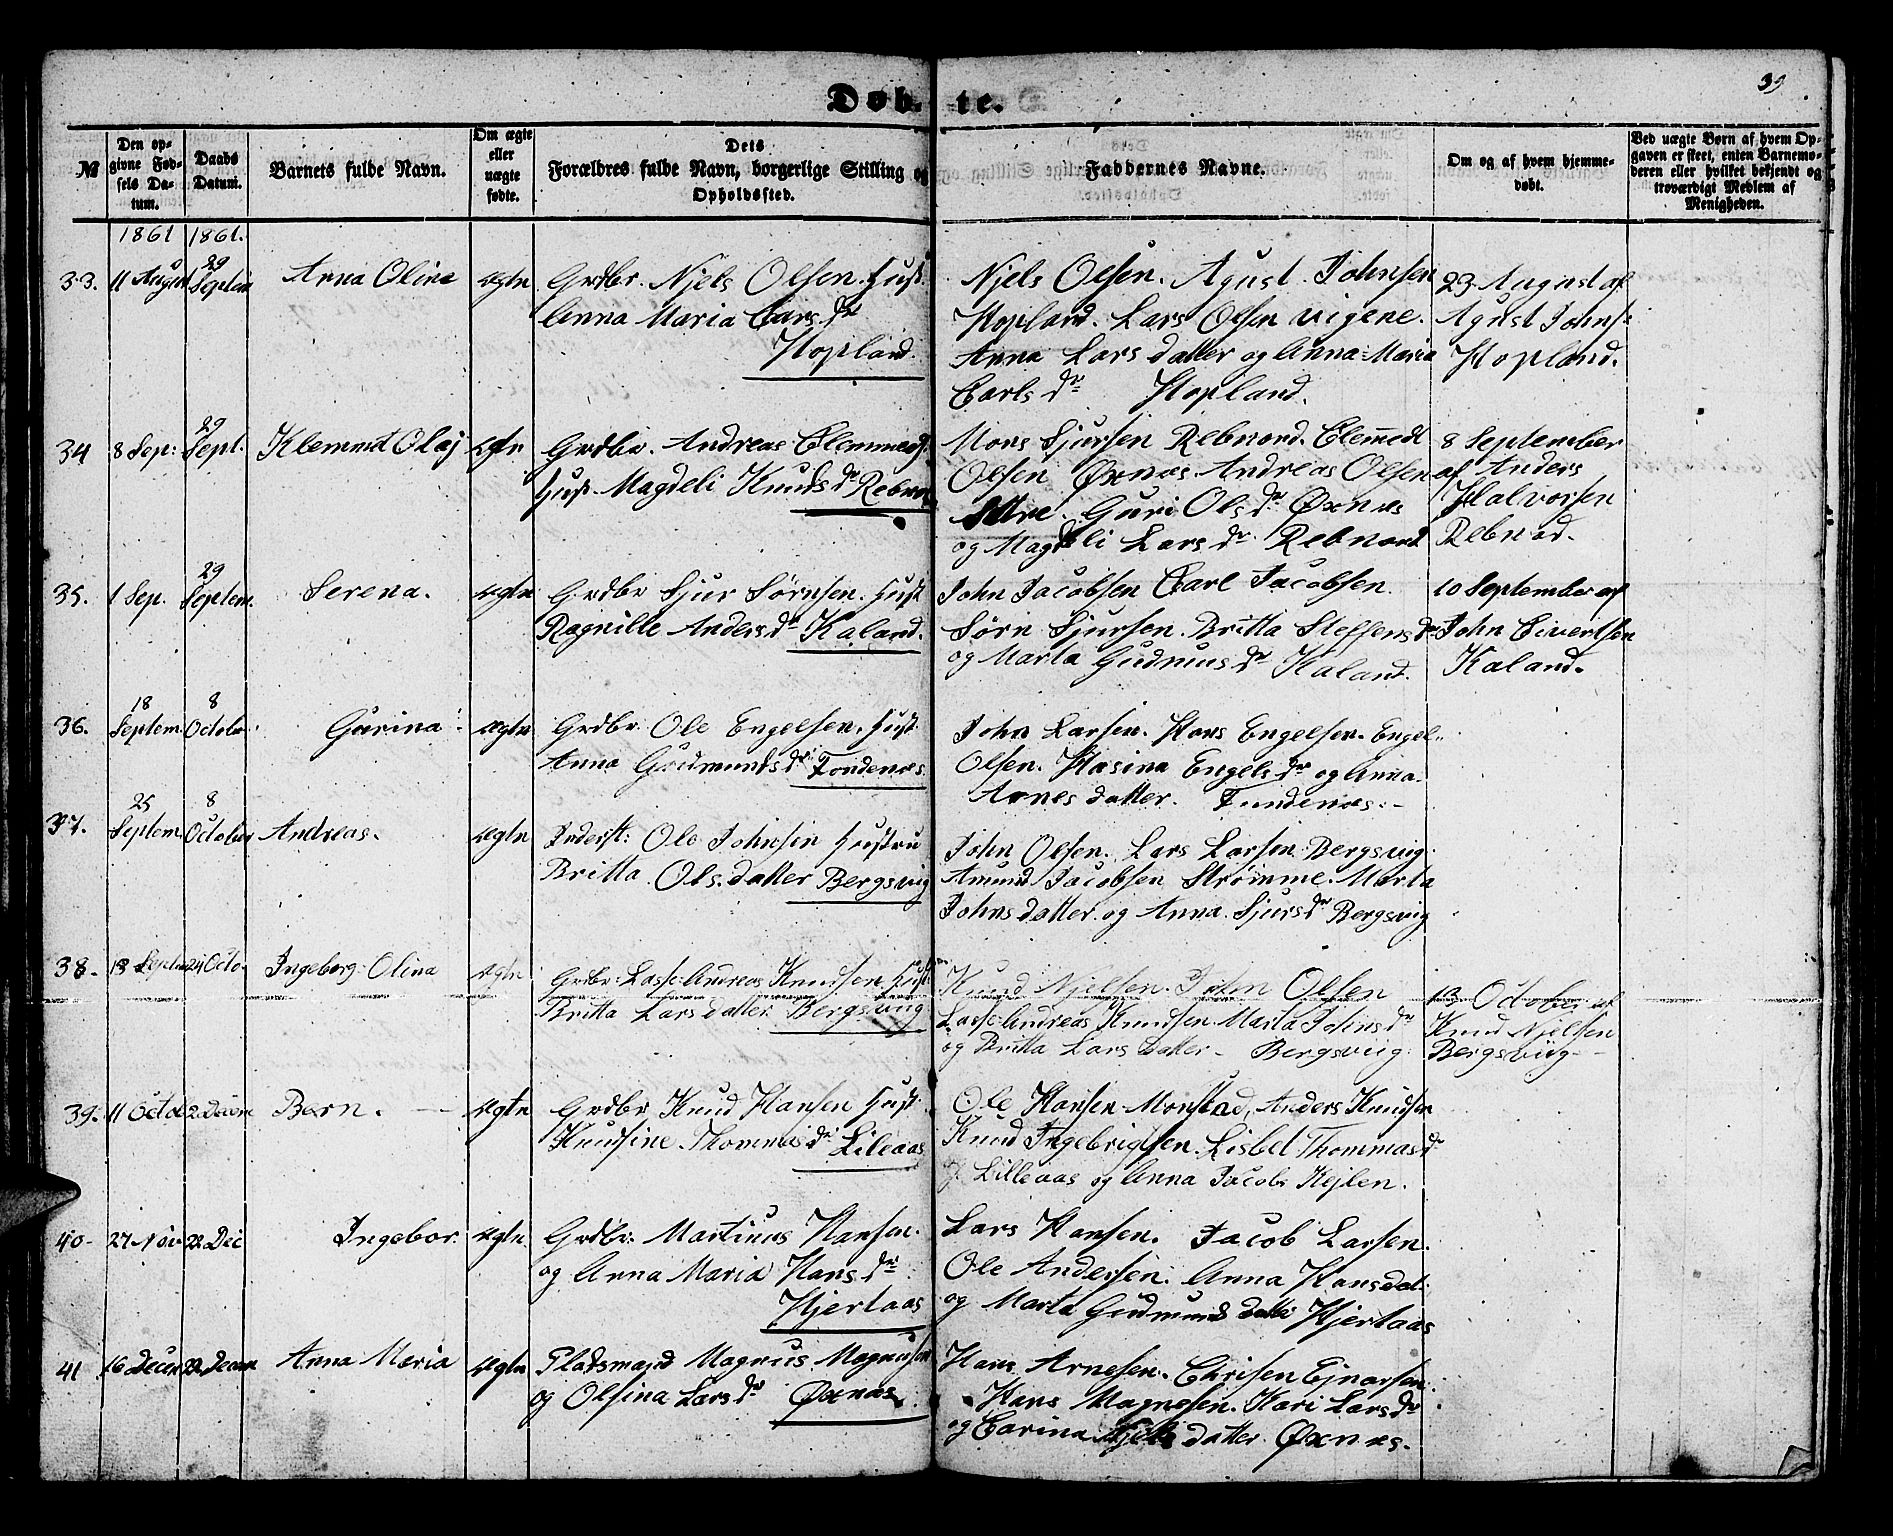 39
Døbte.
№
Den op-
givne Fød-
sels Da-
tum.
Daabs
Datum.
Barnets fulde Navn.
Om ægte
eller
uægte
fødte.
Dets
Forældres fulde Navn, borgerlige Stilling og
Opholdssted.
Faddernes Navne.
Om og af hvem hjemme-
døbt.
Ved uægte Børn af hvem Op-
gaven er skeet, enten Barnemo-
deren eller hvilket bekjendt og
troværdigt Medlem af
Menigheden.
1861 1861.
33. 11 August 29 Septem Anna Olina ægtn
Grdbr. Njels Olsen. Hust.
Anna Maria Carsdr
Hopland.
Njels Olsen. Agust Johnsen
Hopland. Lars Olsen Vigene.
Anna Lars datter og Anna Maria
Carls dr Hopland.
23 August af
Agust Johns:
Hopland.
34 8 Sep: 29 Sept. Klemmit Olaj ægtn
Grdbr. Andreas Clemmeds.
Hust. Magdeli Knuds dr Rebno
Mons Sjursen Rebnord. Clemedt
Olsen Øxnæs Andreas Olsen
Guri Ols dr Øxnæs
og Magdeli Lars dr Rebnord
8 September
af Anders
Halvorsen
Rebnod.
35. 1 Sep. 29 Septem. Serena. ægtn
Grdbr Sjur Sørnsen. Hust
Ragnille Anders dr Kaland.
John Jacobsen Carl Jacobsen.
Sørn Sjursen. Britta Steffens dr
og Marta Gudmus dr Kaland.
10 September af
John Sivertsen
Kaland.
36. 18 Septem. 8 October Gurina ægtn
Grdbr. Ole Engelsen. Hust
Anna Gudmunds dr Tondenæs.
John Larsen. Hans Engelsen. Engel
Olsen. Hasina Engels dr og Anna
Arnes datter. Tundenæs.
37. 25 Septem. 8 October Andreas. ægtn
Inderst: Ole Johnsen Hustru
Britta Ols. datter Bergsvig
John Olsen. Lars Larsen Bergsvig.
Amund Jacobsen Strømme. Marta
Johns datter. og Anna Sjurs dr Bergsvig
38. 13 Septem 24 Octo. Ingeborg Olina ægtn
Grdbr. Lasse Andreas Knudsen Hust
Britta Lars datter Bergsvig
Knud Njelsen. John Olsen
Lasse Andreas Knudsen. Marta Johns dr
og Britta Lars datter - Bergsviig
10 October af
Knud Njelsen
Bergsviig
39. 11 Octob 2 Decem Bern. ægtn
Grdbr Knud Hansen Hust.
Knudsine Thommas dr Lileaas
Ole Hansen Monstad, Anders Knudsen
Knud Ingebrigtsen. Lisbet Thommas dr
Lilleaas og Anna Jacobs Kejlen.
40. 27 Nov 22 Dec Ingebor. ægtn.
Grdbr. Martinus Hansen.
og Anna Maria Hans dr
Hjertaas
Lars Hansen. Jacob Larsen.
Ole Andersen. Anna Hansdat.
og Marta Gudmund datter Hjertaas
41 16 Decem 22 Decem Anna Maria ægtn
Pladsmand Magnus Magnusen
og Olsina Lars dr Øxnæs.
Hans Arnesen. Chrisen Ejnarsen.
Hans Magnesen. Kari Lars dr
og Carina Njels datter. Øxnæs.